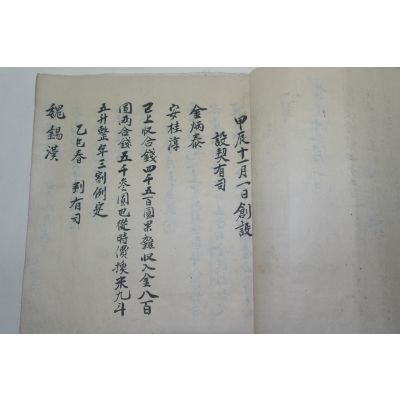 甲辰十一月一日創設
設契有司
金炳泰
安桂淳
已上收合錢四千五百圓果雜收入金八百
圓兩合錢五千叁圓也從時價換米九斗
五升整年三割例定
乙巳春 判有司
魏錫漢